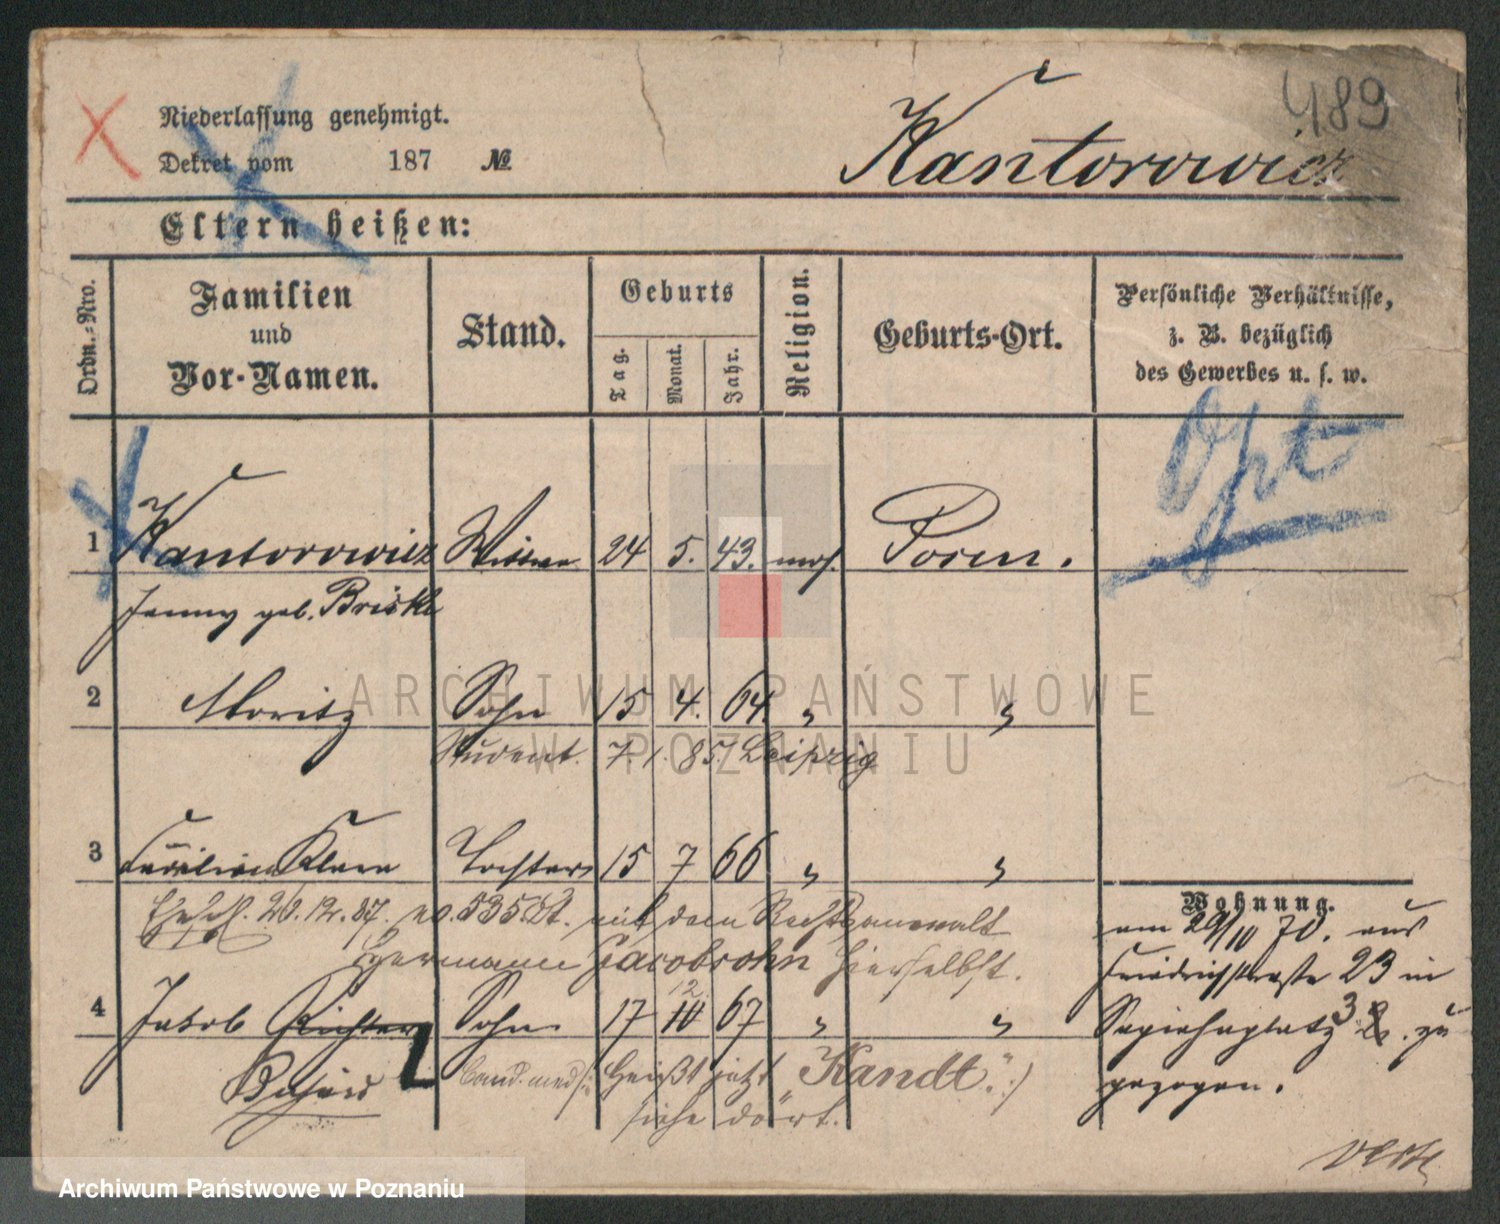 489
Niederlassung genehmigt.
Dekret vom 187 №
Kantorowicz
Eltern heißen:
Ordn.-Nro.
Familien und Vor-Namen.
Stand.
Geburts
Tag.
Monat.
Jahr.
Religion.
Geburts-Ort.
Persönliche Verhältnisse,
z. B. bezüglich
des Gewerbes u. s. w.
Opt
1 Kantorowicz Wittwe 24 5. 43. mos. Posen.
Jenny geb.
2 Moritz Sohn 15 4. 64 " "
Student. 7.1.85. Leipzig
3 Cäcilie Klara Tochter 15 7 66 " "
12. 87. no. 535 mit dem Rechtsanwalt
Hermann Jacobsohn hierselbst.
4 Jakob Richter Sohn 17 10 12 67 " "
cand. med. heißt jetzt „Kandt".)
siehe dort.
Wohnung.
am 29/10 70. aus
Friedrichstraße 23 in
Sapiehaplatz 3 zu
gezogen.
verte
ARCHIWUM PAŃSTWOWE
W POZNANIU
Archiwum Państwowe w Poznaniu